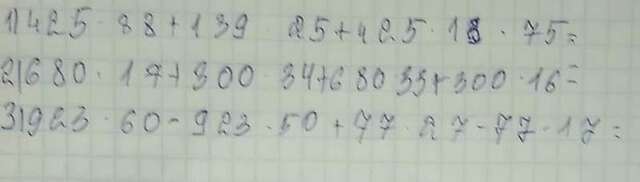 1) 425 · 88 + 139 · 25 + 425 · 13 · 75 =
2) 680 · 17 + 300 · 34 + 680 33 + 300 · 16 =
3) 923 · 60 - 923 · 50 + 77 · 27 - 77 · 17 =